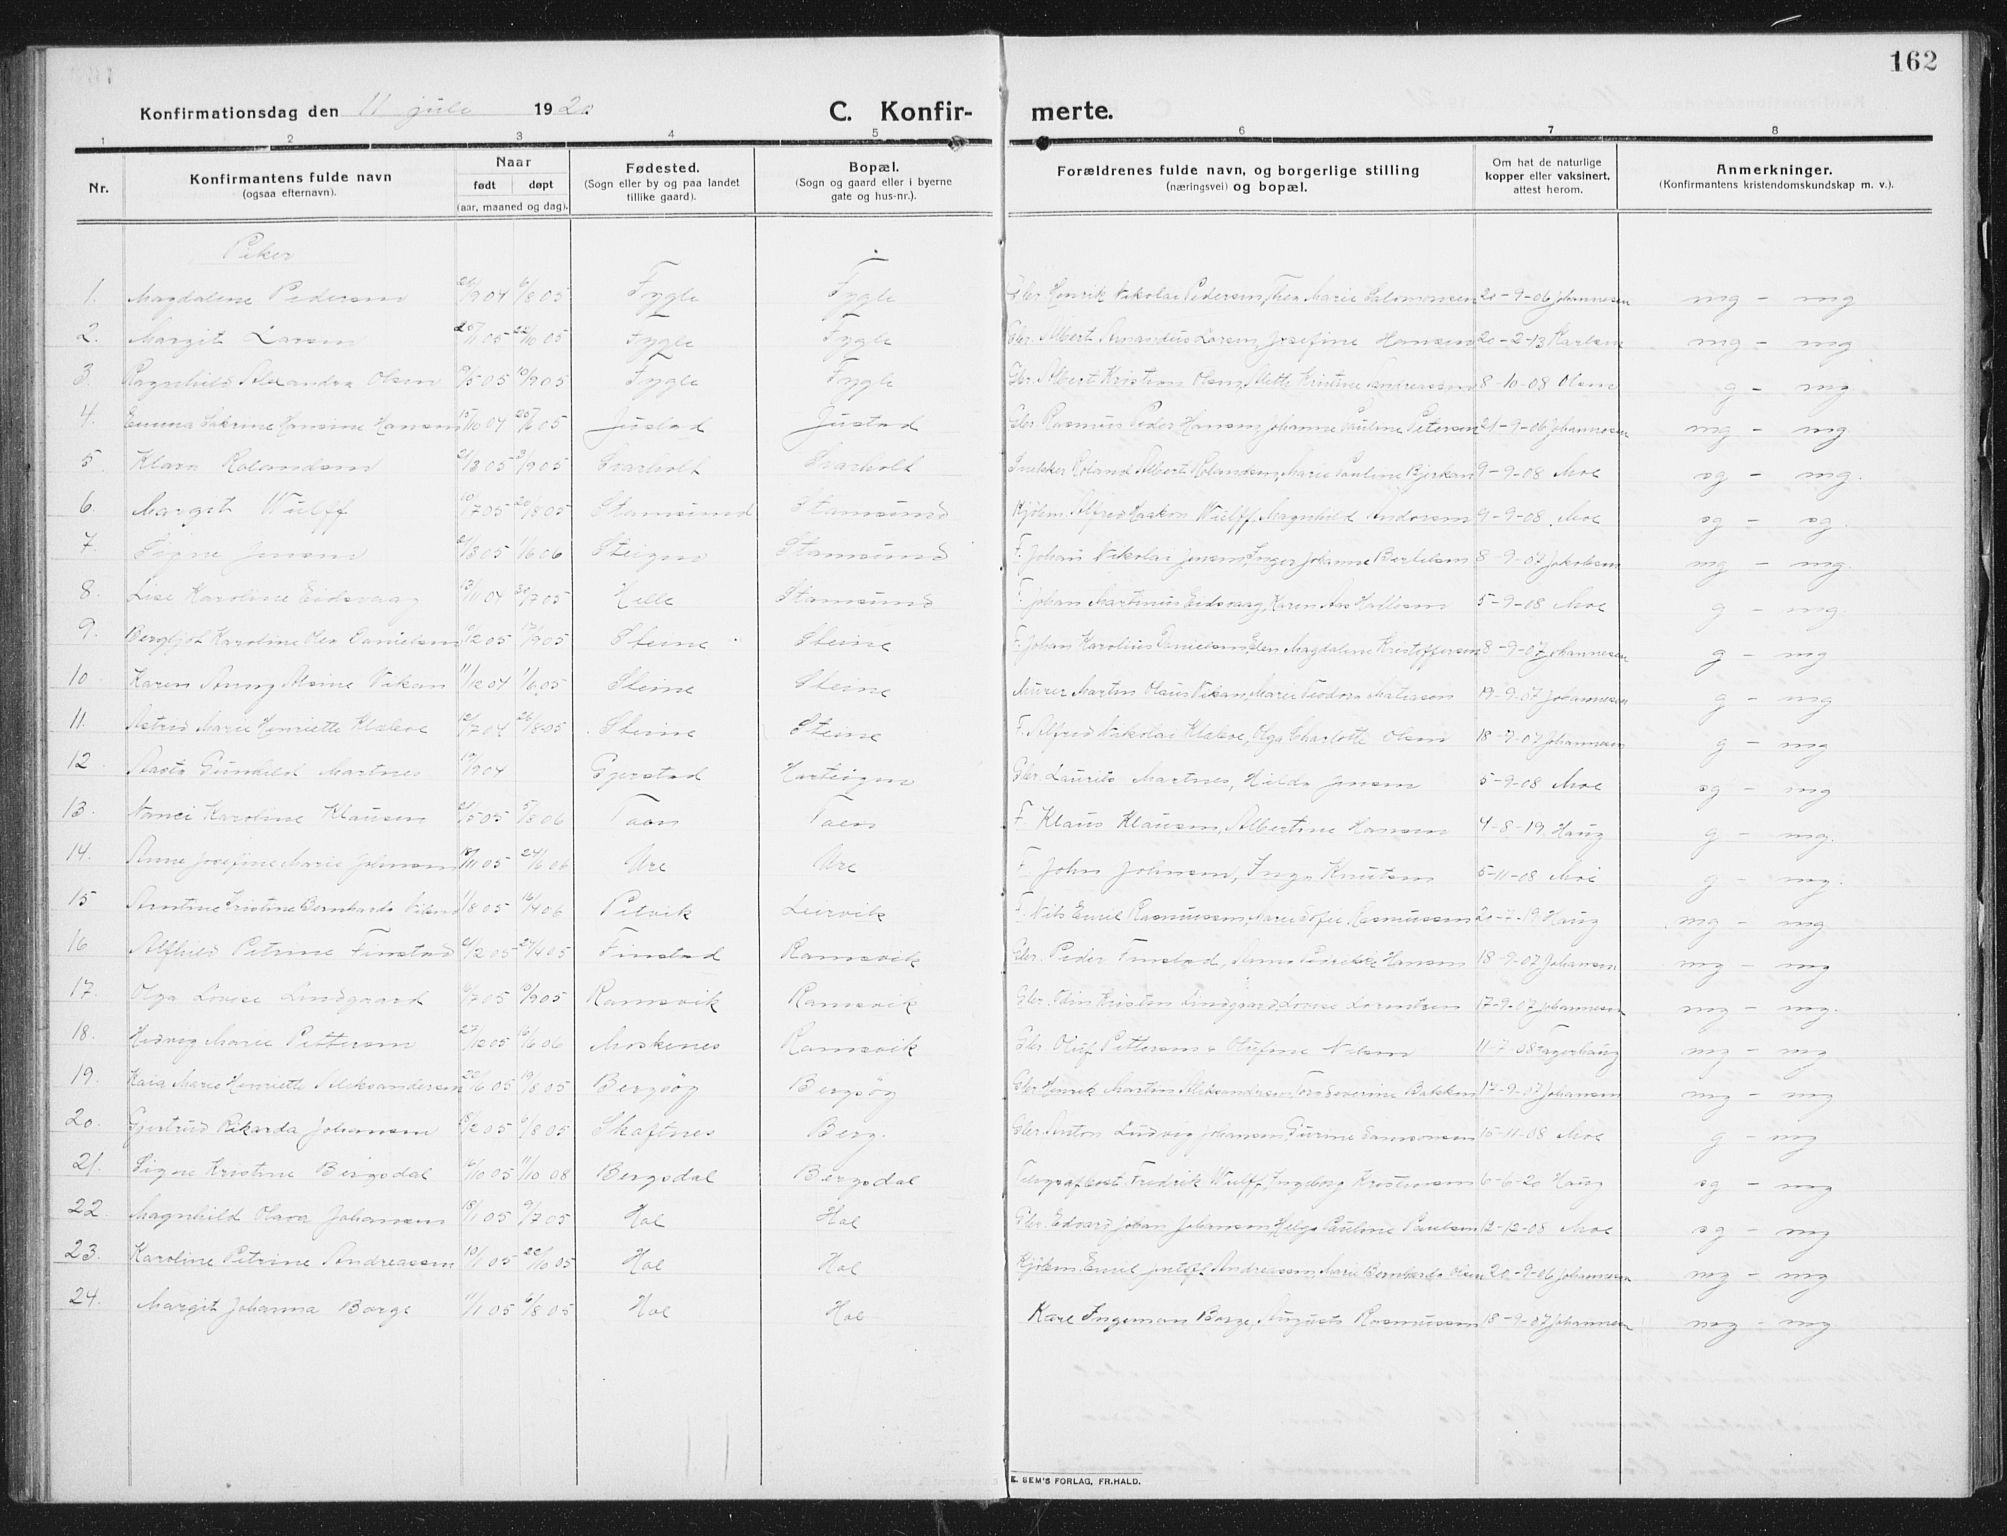 162
Konfirmationsdag den 11 juli 1920. C. Konfir- merte.
1 2 3 4 5 6 7 8
Nr. Konfirmantens fulde navn (ogsaa efternavn). Naar født døpt (aar, maaned og dag). Fødested. (Sogn eller by og paa landet tillike gaard). Bopæl. (Sogn og gaard eller i byerne gate og hus-nr.). Forældrenes fulde navn, og borgerlige stilling (næringsvei) og bopæl. Om hat de naturlige kopper eller vaksinert, attest herom. Anmerkninger. (Konfirmantens kristendomskundskap m. v.).
Piker
1. Magdalene Pedersen 6/8 05 Fygle Fygle Gbr. Henrik Nikolai Pedersen, Thea Marie Salomonsen 20-9-06 Johannesen mg - mg
2. Margit Larsen 22/10 05 Fygle Fygle Gbr. Albert Arnandus Larsen, Josefine Hansen 20-2-13 Karlsen mg - mg
3. Ragnhild Alexandra Olsen 10/9 05 Fygle Fygle Gbr. Albert Kristian Olsen, Mette Kristine Andreassen 8-10-08 Olsen g - mg
4. Emma Sakrine Hansine Hansen 15/10 04 Justad Justad Gbr. Rasmus Peder Hansen, Johanne Pauline Petersen 21-9-06 Johannesen mg - mg
5. Klara Rolandsen 3/9 05 Svarholt Svarholt Snekker Roland Albert Rolandsen, Marie Pauline Bjerkan 9-9-08 Moe sg - mg.
6. Margit Wulff 10/7 05 20/8 05 Stamsund Stamsund Kjøbm. Alfred Haakon Wulff, Magnhild Andersen 9-9-08 Moe sg - sg.
7 Signe Jensen 1/6 06 Steigen Stamsund F. Johan Nikolai Jensen, Inger Johanne Bertelsen 8-9-07 Jakobsen mg - mg.
8. Lise Karoline Eidsvaag 13/11 04 30/7 05 Helle Stamsund F. Johan Martinus Eidsvaag, Karen Aas 5-9-08 Moe g - mg.
9. Bergljot Karoline Olea Danielsen 17/9 05 Steine Steine F. Johan Karolius Danielsen, Elen Magdalene Kristoffersen 8-9-07 Johannesen g - mg
10 Karen Anny Alsine Vikan 11/12 04 1/6 05 Steine Steine Murer Martin Olaus Vikan, Marie Teodora Matiasen 19-9-07 Johannesen g - mg
11. Astrid Marie Henriette Klæboe 12/7 04 26/8 05 Steine Steine F. Alfred Nikolai Klæboe, Olga Charlotte Olsen 18-9-07 Johannesen g - mg
12 Aasta Gunhild Martnes 19/9 04 Gjerstad Gbr. Laurits Martnes, Hilda Jensen 5-9-08 Moe sg - mg
13. Nanci Karoline Klausen 5/8 06 Taen Taen F. Klaus Klausen, Albertine Hansen 4-8-19, Haug g - mg.
14. Anne Josefine Marie Johnsen 18/11 05 24/6 06 Ure Ure F. John Johnsen, Inga Knutsen 5-11-08 Moe g - mg.
15 Kristine Bernharda 1/8 05 16/4 06 Petvik Leirvik F. Nils Emil Rasmussen, Marie Sofie Rasmussen Haug mg - mg
16 Alfhild Petrine Finstad 24/4 05 Finstad Ramsvik Gbr. Peder Finstad, Anna Hansen 18-9-07 Johansen mg - mg
17. Olga Lovise Lindgaard Ramsvik Ramsvik Gbr. Edin Kristen Lindgaard, Lovise Lorentsen 17-9-07 Johannesen mg - mg.
18. Hedvig Marie Pettersen 16/6 06 Moskenes Ramsvik Gbr. Oluf Pettersen & Olufine Nilsen 11-7-08 Fagerhaug mg - mg
19. Kaia Marie Henriette Aleksandersen 22/6 05 19/8 05 Bergsög Bergsög Gbr. Henrik Martin Aleksandersen, Tora Severine Bakken 17-9-07 Johansen mg - mg
20. Gjertrud Rikarda Johansen 6/8 05 Skaftnes Berg. Gbr. Anton Ludvig Johansen, Gurine Samsonsen 15-11-08 Moe g - mg
21. Signe Kristine Bergsdal 16/10 05 11/10 08 Bergsdal Bergsdal Telegrafbest. Fredrik Wulff, Ingeborg Kristensen 6-6-20 Haug sg - mg
22. Magnhild Olava Johansen 18/1 05 9/7 05 Hol Hol Gbr. Edvard Johan Johansen, Helga Pauline Paulsen 12-12-08 Moe sg - mg
23. Karoline Petrine Andreassen 10/1 05 22/10 05 Hol Hol Kjøbm. Emil Andreassen, Marie Bernharda Olsen 20-9-06 Johannesen mg - mg
24. Margit Johanna Borge 11/1 05 6/8 05 Hol Hol Karl Ingeman Borge, Augusta Rasmussen 18-9-07 Johannesen mg - mg
E. SEM'S FORLAG, FR.HALD.